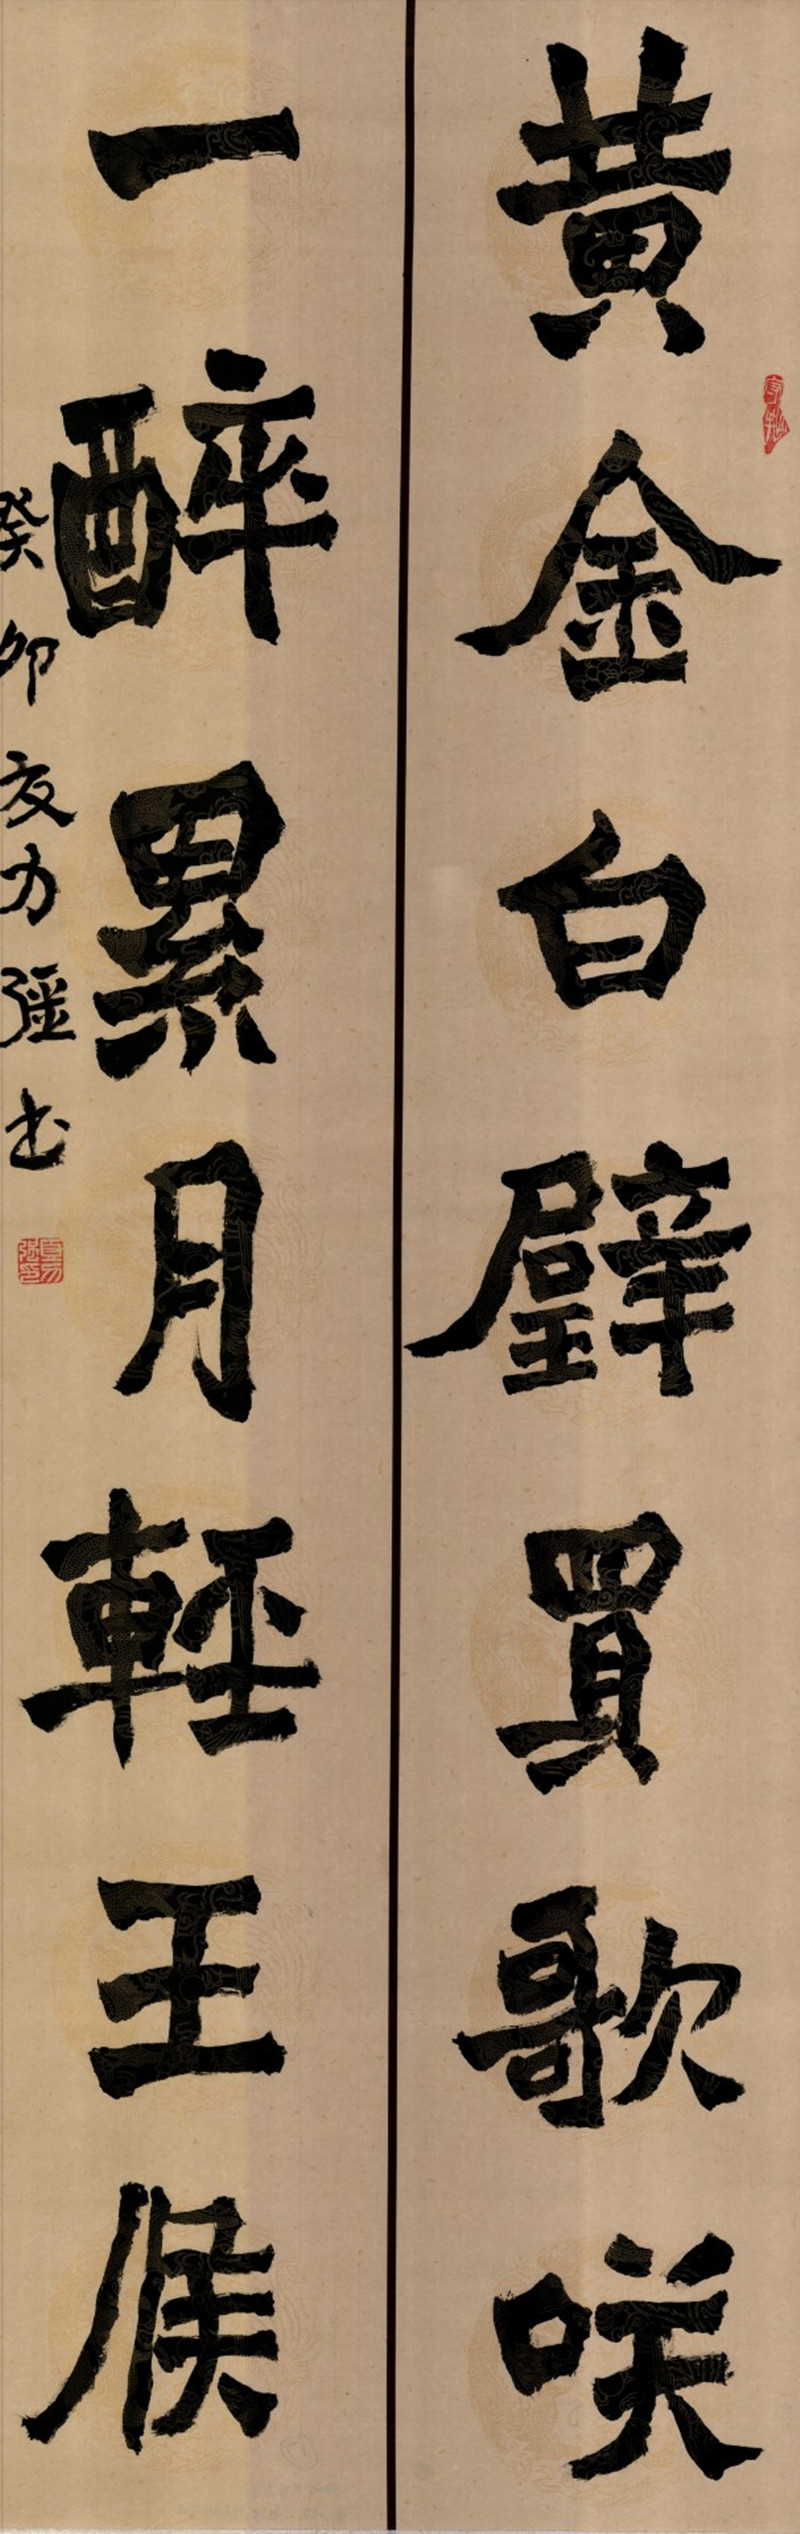 黄金白璧買歌咲
一醉累月輕王侯
癸卯夏力強书